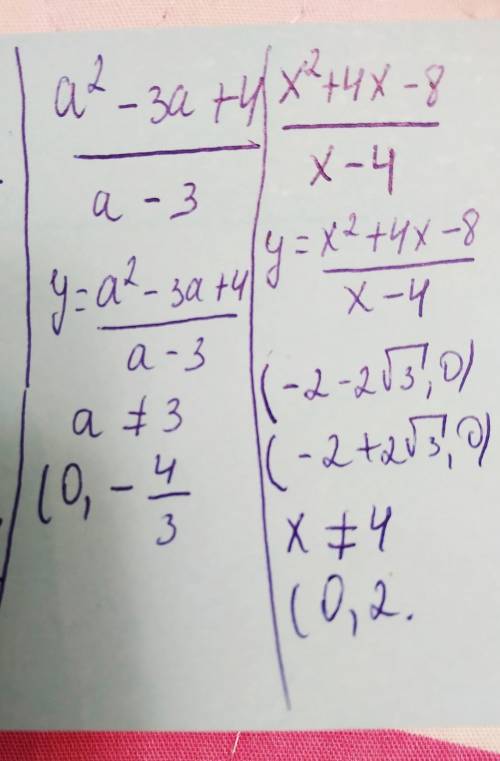 a² - 3a + 4
a - 3
y = a² - 3a + 4
a - 3
a ≠ 3
(0, - 4/3
x² + 4x - 8
x - 4
y = x² + 4x - 8
x - 4
(-2 - 2√3, 0)
(-2 + 2√3, 0)
x ≠ 4
(0, 2.